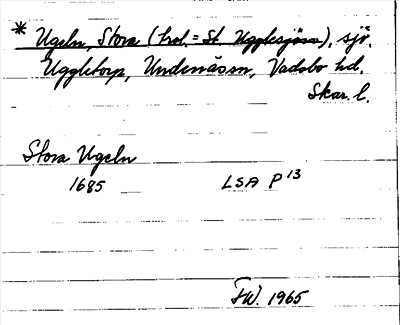 * Ugeln, Stora (trol. = St. Ugglesjön), sjö.
Uggletorp, Undenäs sn, Vadsbo hd.
Skar. l.
Stora Ugeln
1685 LSA P 13
FW. 1965